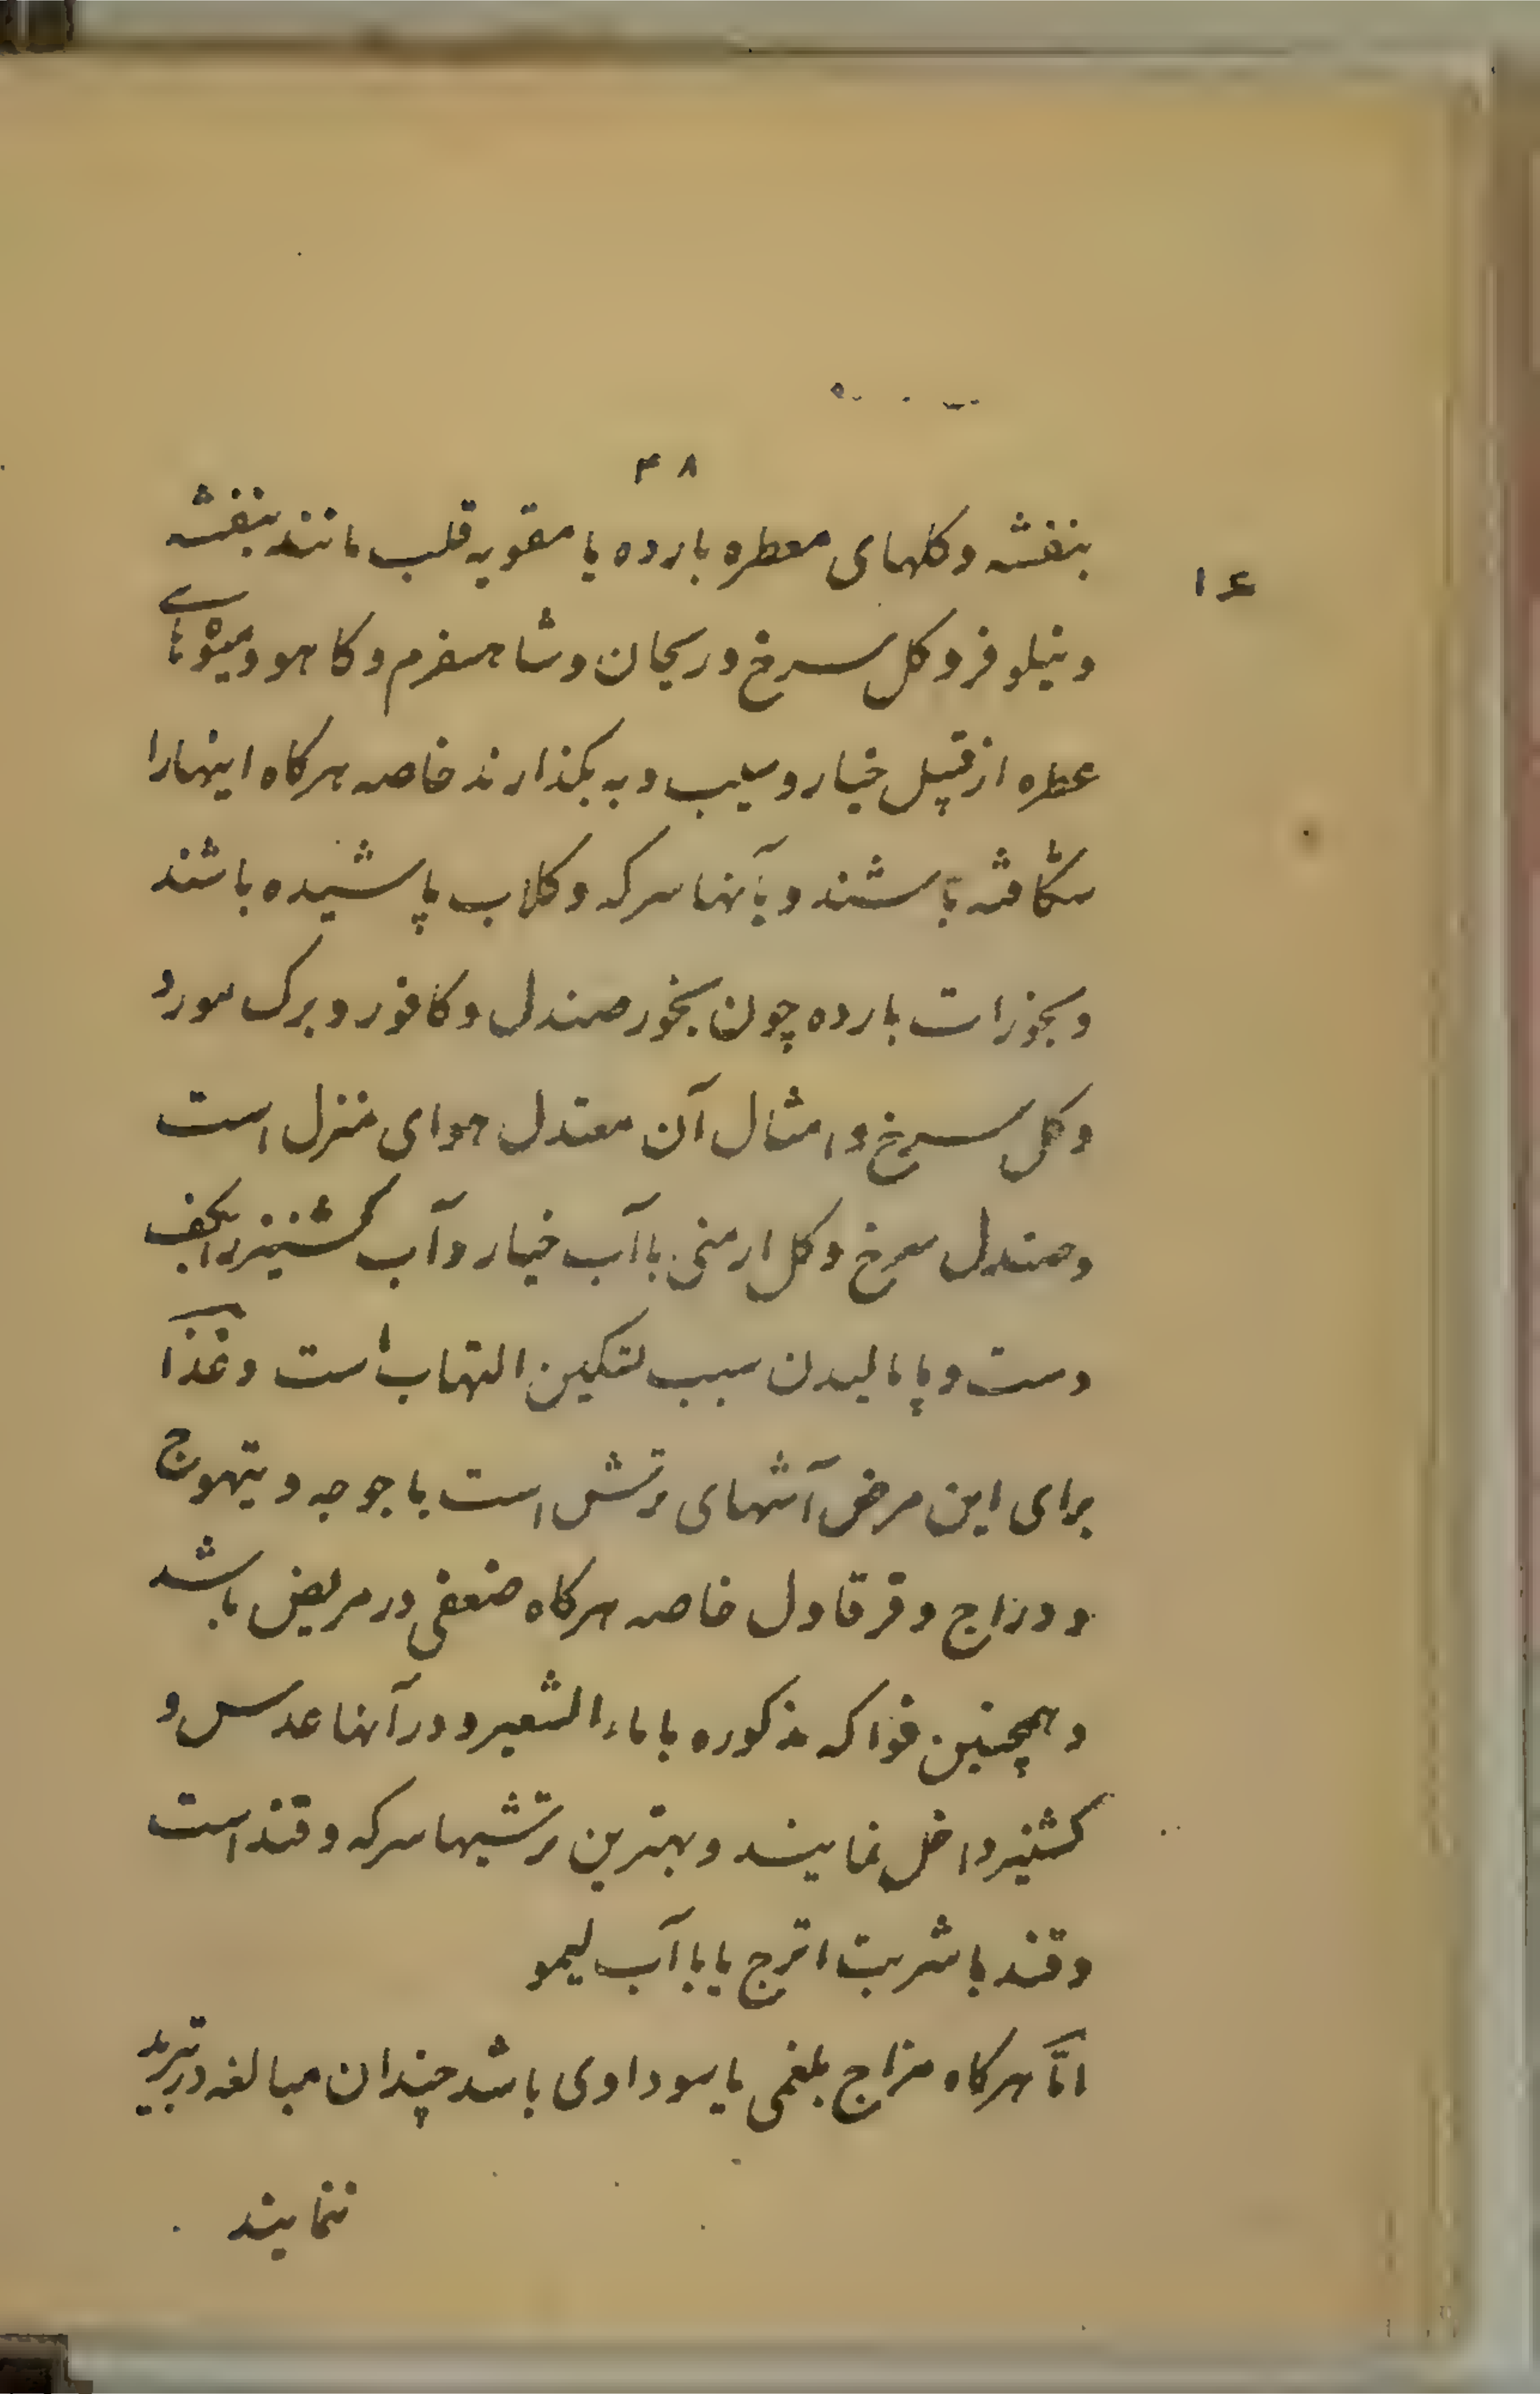 ۴۸
۱۶
بنفشه وکلهای معطره بارده یا مقویه قلب مانند بنفشه
ونیلوفر وکل سرخ وریحان وشاهسفرم وکاهو ومیوهای
عطره ازقبیل خیار وسیب وبه بکذارند خاصه هرکاه اینهارا
شکافته باشند وبآنها سرکه وکلاب پاشیده باشند
وبخورات بارده چون بخور صندل وکافور وبرک مورد
وکل سرخ وامثال آن معتدل هوای منزل است
وصندل سرخ وکل ارمنی باآب خیار وآب کشنیز رابکف
دست وپا مالیدن سبب تسکین التهاب است وغذا
برای این مرض آشهای ترش است باجوجه وتیهوج
ودراج وقرقاول خاصه هرکاه ضعفی درمریض باشد
وهمچنین فواکه مذکوره باماء الشعیر ودرآنها عدس و
کشنیز داخل نمایند وبهترین ترشیها سرکه وقند است
وقند باشربت اترج یاباآب لیمو
امّا هرکاه مزاج بلغمی یاسوداوی باشد چندان مبالغه درتبرید
ننمایند